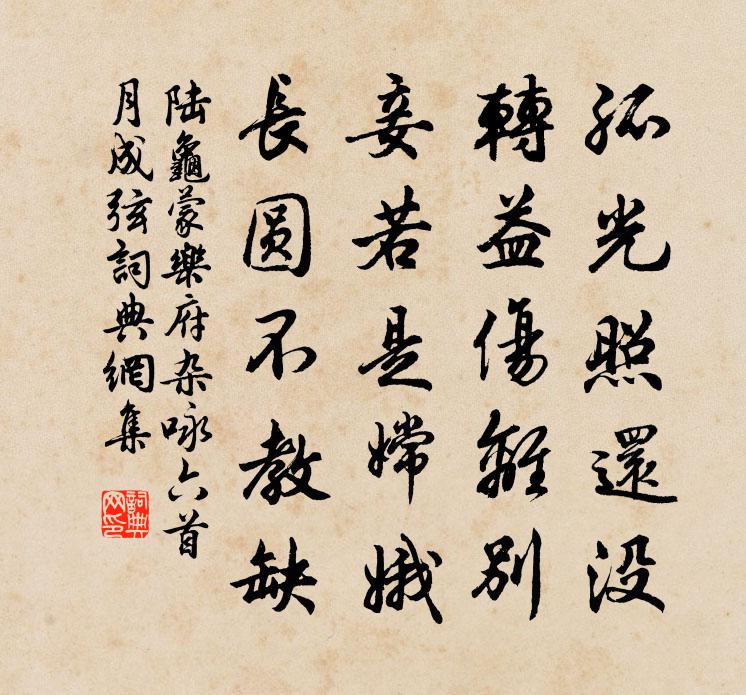 孤光照還没
轉益傷離別
妾若是嫦娥
長圆不教缺
陆龜蒙樂府杂咏六首
月成弦詞典網集
詞典网印